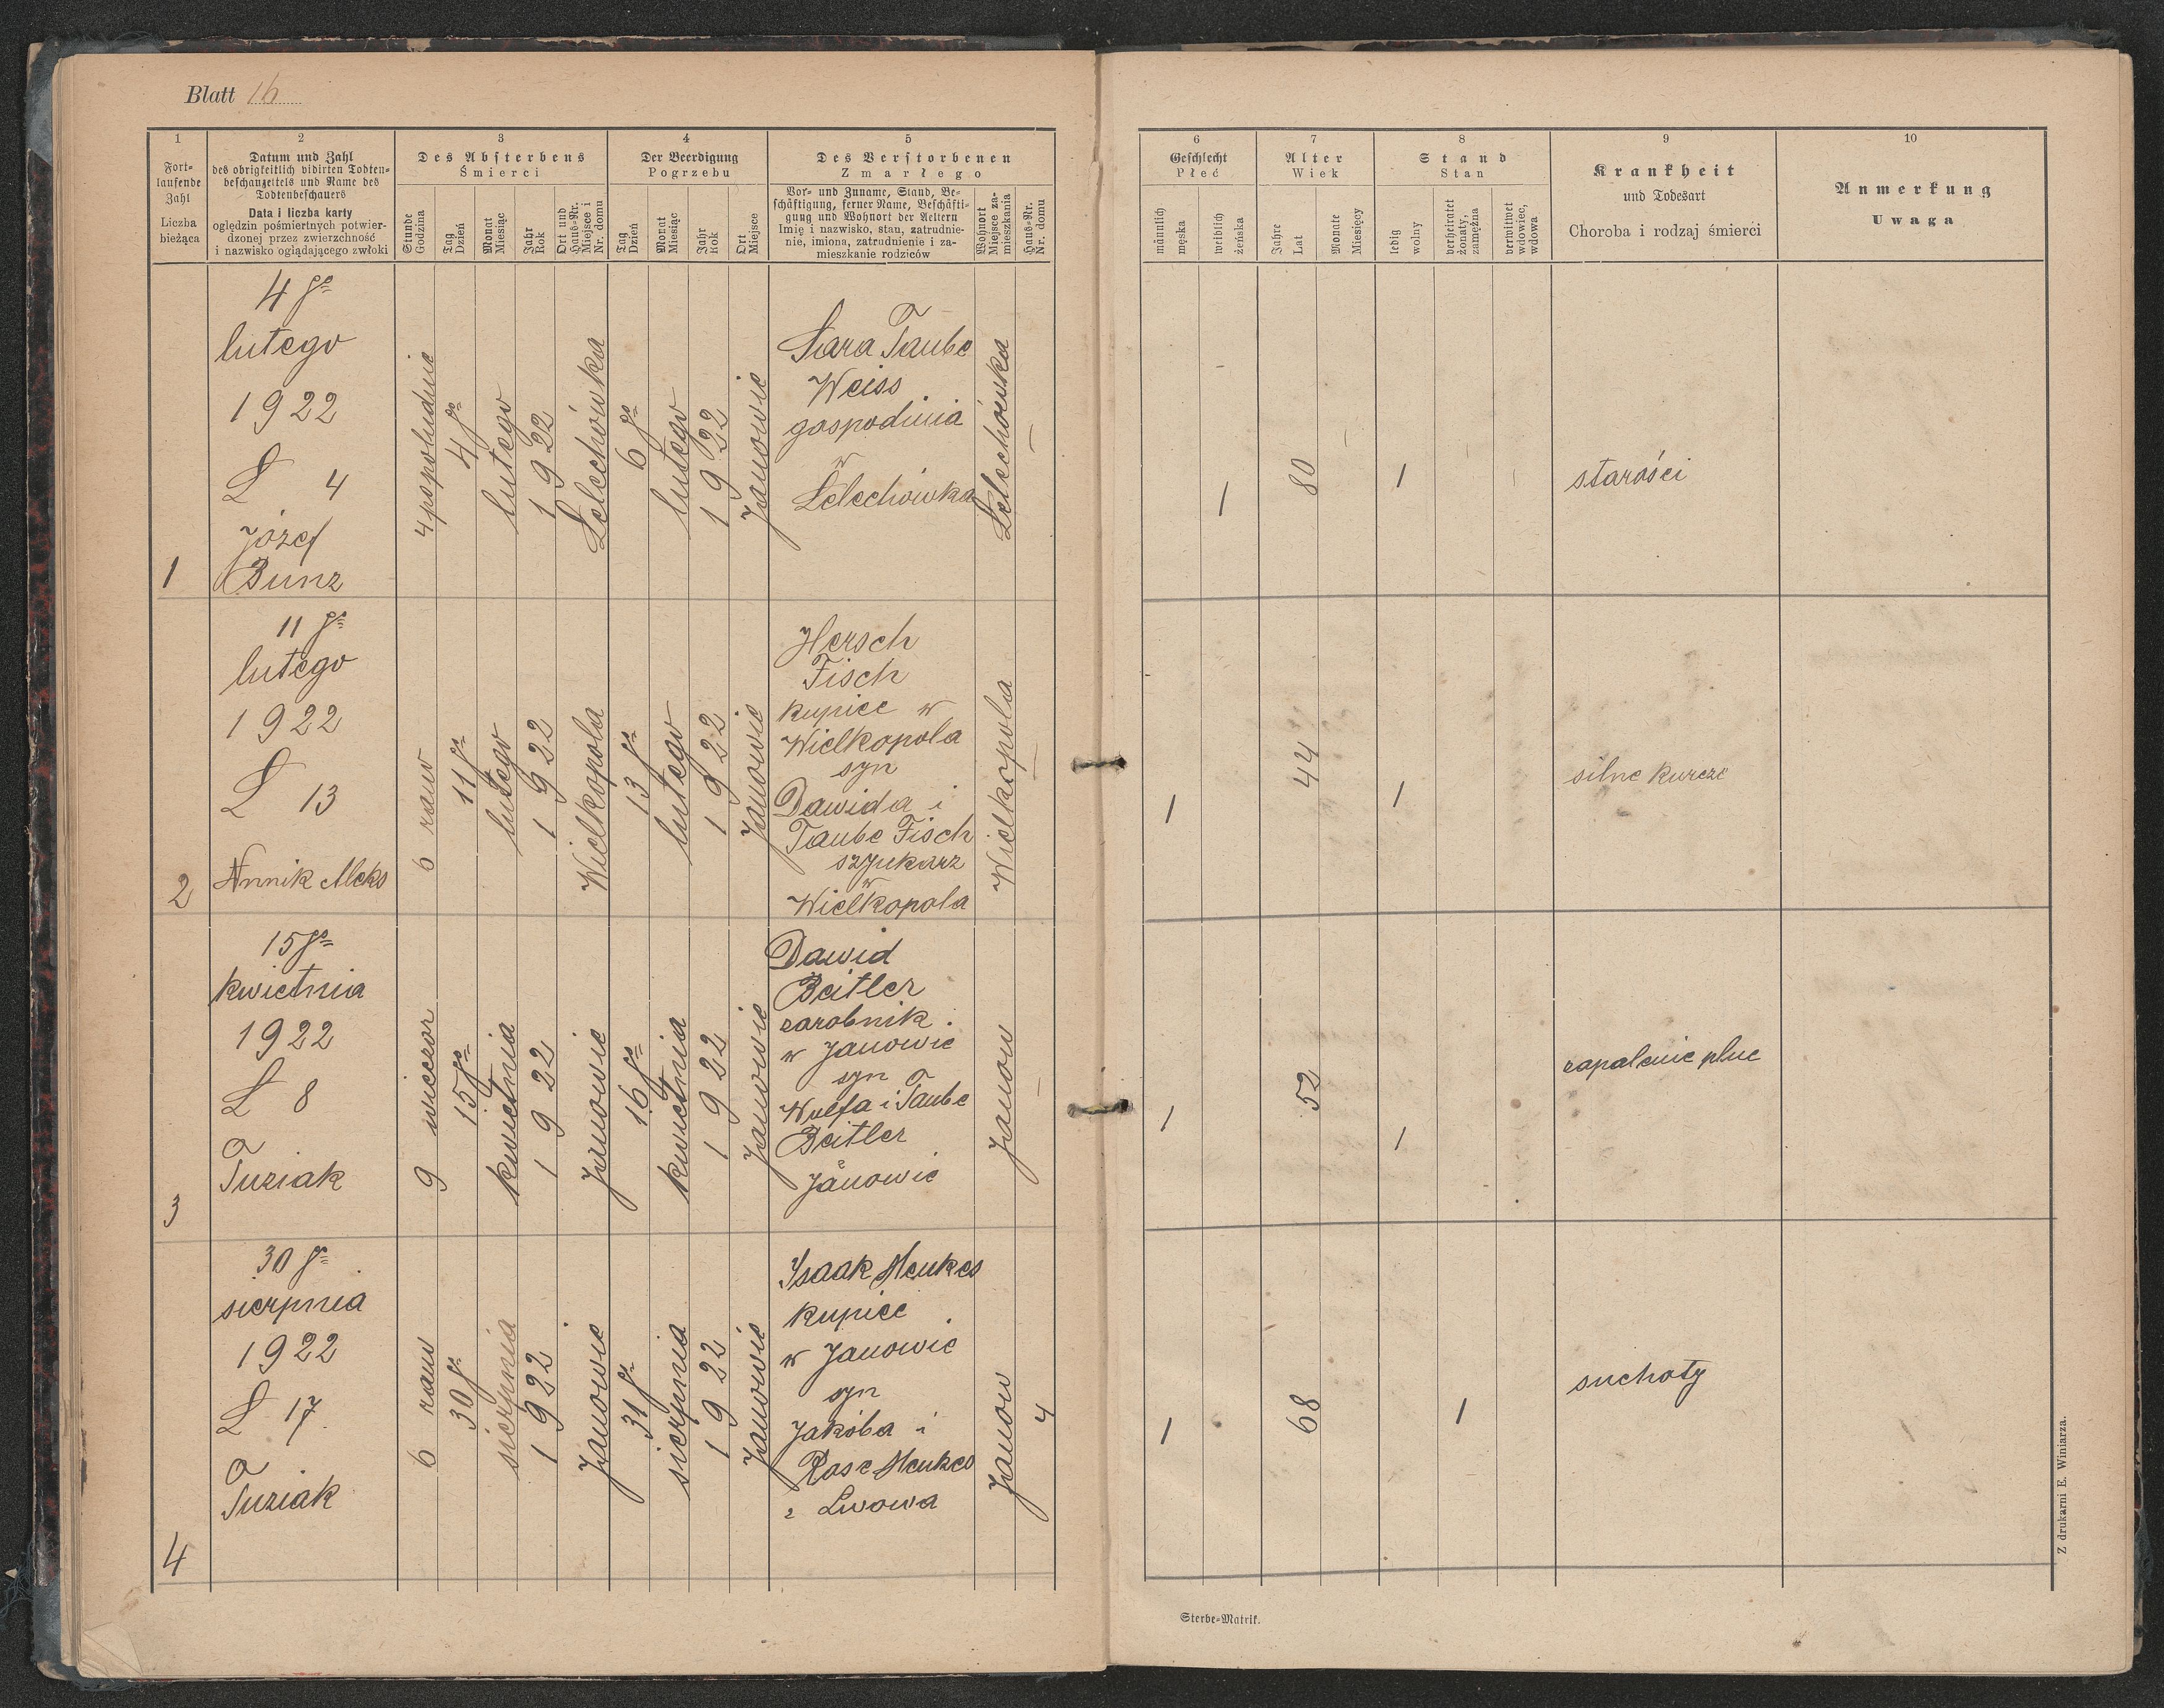 Blatt 16
1
Fort-
laufende
Zahl
Liczba
bieżąca
2
Datum und Zahl
des obrigkeitlich vidirten Todten-
beschauzettels und Name des
Todtenbeschauers
Data i liczba karty
oględzin pośmiertnych potwier-
dzonej przez zwierzchność
i nazwisko oglądającego zwłoki
3
Des Absterbens
Śmierci
Stunde
Godzina
Tag
Dzień
Monat
Miesiąc
Jahr
Rok
Ort und
Haus-Nr.
Miejsce i
Nr. domu
4
Der Beerdigung
Pogrzebu
Tag
Dzień
Monat
Miesiąc
Jahr
Rok
Ort
Miejsce
5
Des Verstorbenen
Zmarłego
Vor- und Zuname, Stand, Be-
schäftigung, ferner Name, Beschäfti-
gung und Wohnort der Aeltern
Imię i nazwisko, stan, zatrudnie-
nie, imiona, zatrudnienie i za-
mieszkanie rodziców
Wohnort
Miejsce za-
mieszkania
Haus-Nr.
Nr. domu
6
Geschlecht
Płeć
männlich
męska
weiblich
żeńska
7
Alter
Wiek
Jahre
Lat
Monate
Miesięcy
8
Stand
Stan
ledig
wolny
verheiratet
żonaty,
zamężna
verwitwet
wdowiec,
wdowa
9
Krankheit
und Todesart
Choroba i rodzaj śmierci
10
Anmerkung
Uwaga
1
4 go
lutego
1922
L 4
Józef
Bunz
4 popołudnie
4 go
lutego
1922
Lelechówka
6 go
lutego
1922
Janowie
Sara Taube
Weiss
gospodinia
w
Lelechówka
Lelechówka
–
1
80
1
starości
2
11 go
lutego
1922
L 13
Annik Aleks
6 rano
11 go
lutego
1922
Wielkopola
13 go
lutego
1922
Janowie
Hersch
Fisch
kupiec w
Wielkopola
syn
Dawida i
Taube Fisch
szynkarz
w
Wielkopola
Wielkopola
–
1
44
1
silne kurcze
3
15 go
kwietnia
1922
L 8
Tuziak
9 wieczor
15 go
kwietnia
1922
Janowie
16 go
kwietnia
1922
Janowie
Dawid
Beitler
zarobnik
w Janowie
syn
Wolfa i Taube
Beitler
Janowie
Janow
–
1
52
1
zapalenie płuc
4
30 go
sierpnia
1922
L 17
Tuziak
6 rano
30 go
sierpnia
1922
Janowie
31 go
sierpnia
1922
Janowie
Isaak Menkes
kupiec
w Janowie
syn
Jakóba i
Rose Menkes
z Lwowa
Janow
4
1
68
1
suchoty
Sterbe-Matrik.
Z drukarni E. Winiarza.